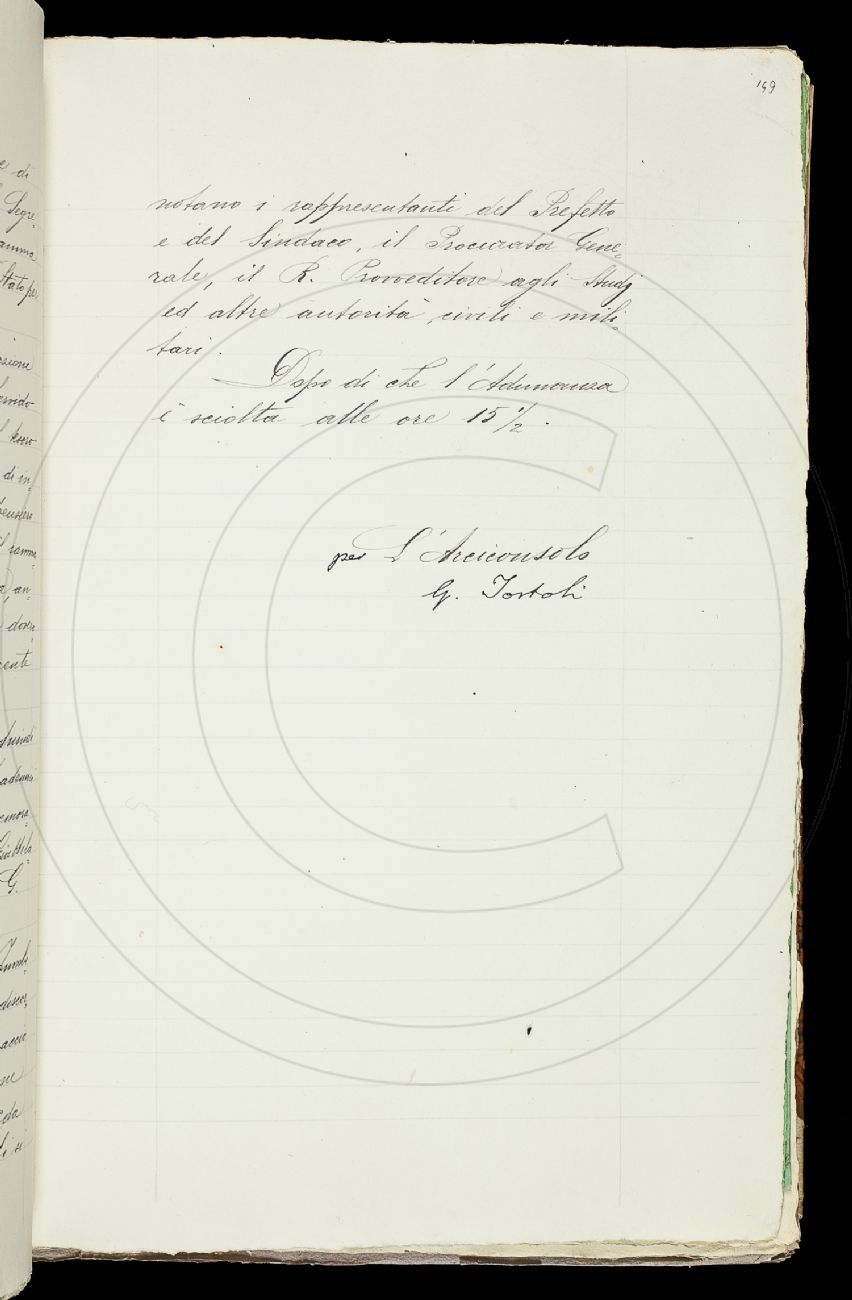 149
notano i rappresentanti del Prefetto
e del Sindaco, il Procurator Gene=
rale, il R. Provveditore agli Studj
ed altre autorità civili e mili=
tari.
Dopo di che l'Adunanza
è sciolta alle ore 15 1/2.
per L'Arciconsolo
G. Tortoli